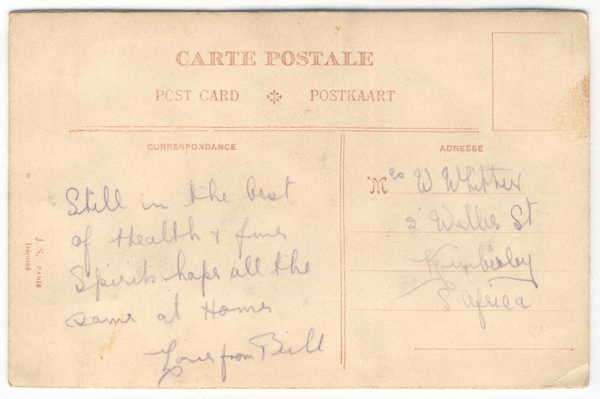 CARTE POSTALE
POST CARD POSTKAART
CURRESPONDANCE
ADRESSE
Still in the best
of Health & fine
Spirits hope all the
same at Home
Love from Bill
Mrs W Whittier
2 Wallis St
Kimberley
S Africa